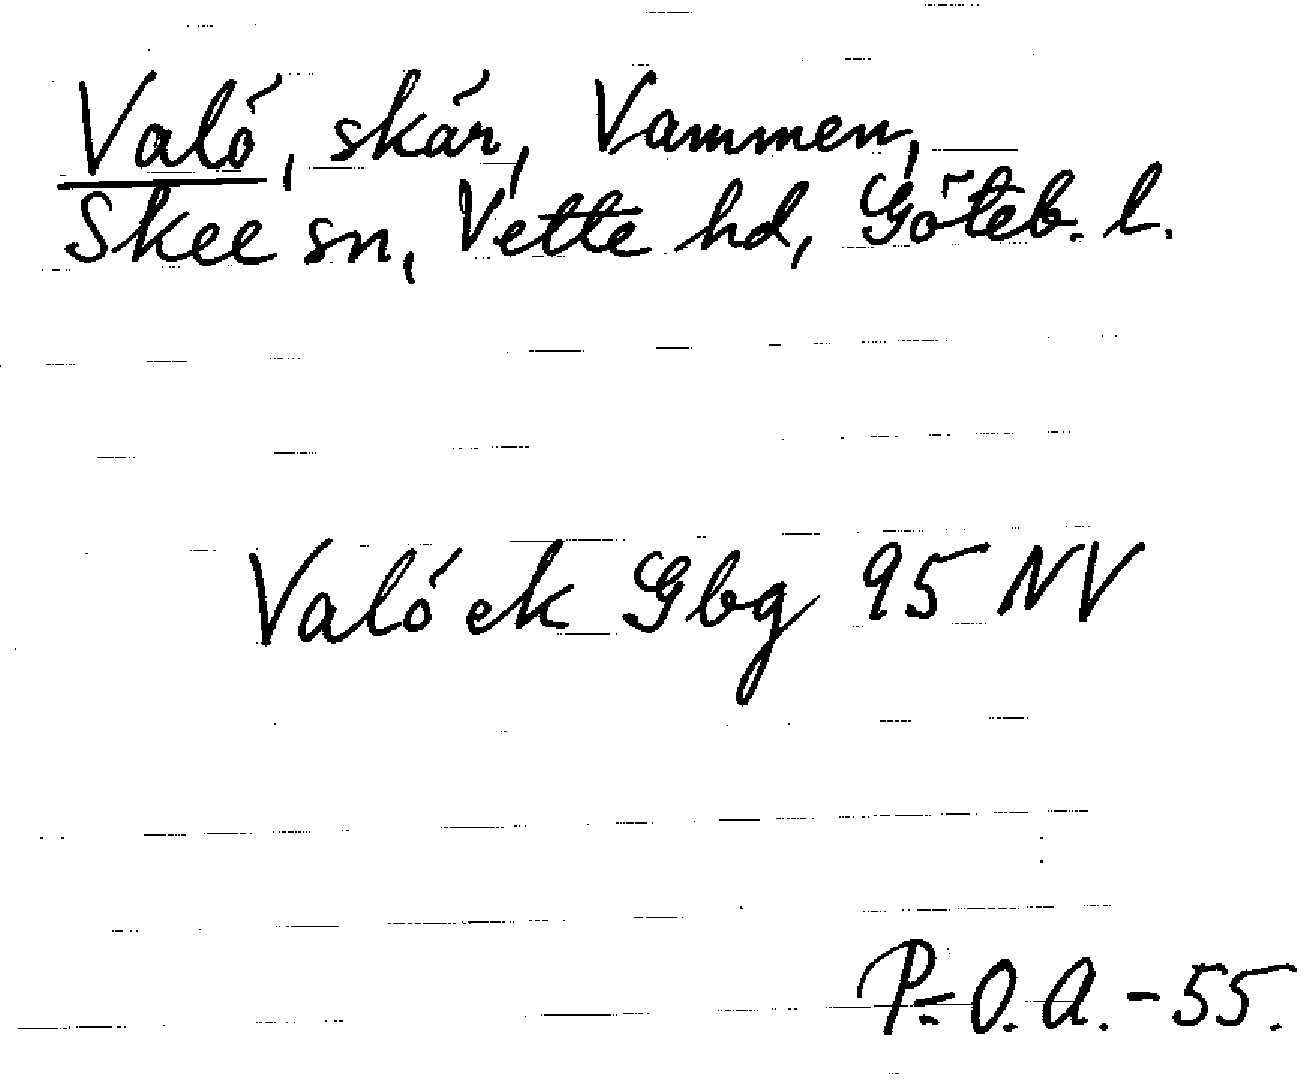 Valö, skär, Vammen,
Skee sn, Vette hd, Göteb. l.
Valö ek Gbg 95 NV
P-O. A. - 55.